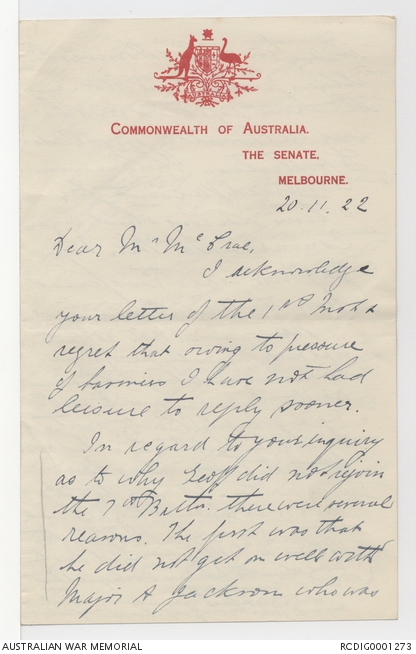 COMMONWEALTH OF AUSTRALIA.
THE SENATE,
MELBOURNE.
20.11.22
Dear Mr McCrae,
I acknowledge
your letter of the 1st Inst &
regret that owing to pressure
of business I have not had
leisure to reply sooner.
In regard to your inquiry
as to why Geoff did not rejoin
the 7th Battn. there were several
reasons. The first was that
he did not get on well with
Major A Jackson who was
AUSTRALIAN WAR MEMORIAL
RCDIG0001273